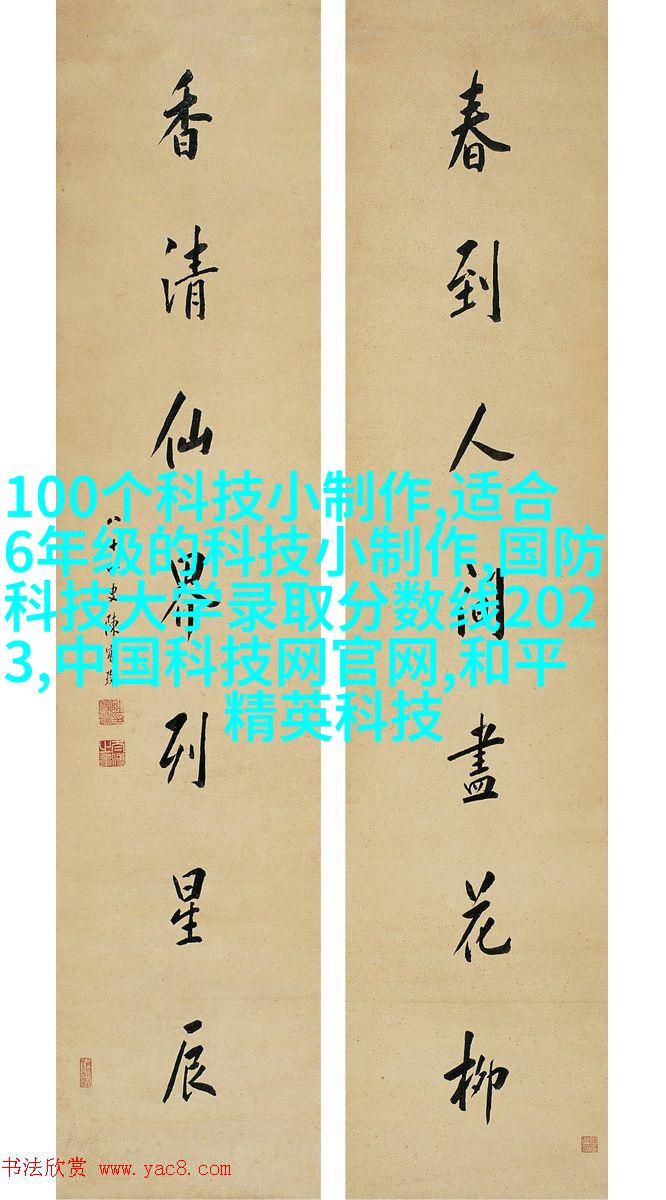 春到人间盡花柳
香清仙界列星辰
100个科技小制作,适合
6年级的科技小制作,国防
科技大学录取分数线202
3,中国科技网官网,和平
精英科技
书法欣赏 www.yac8.com